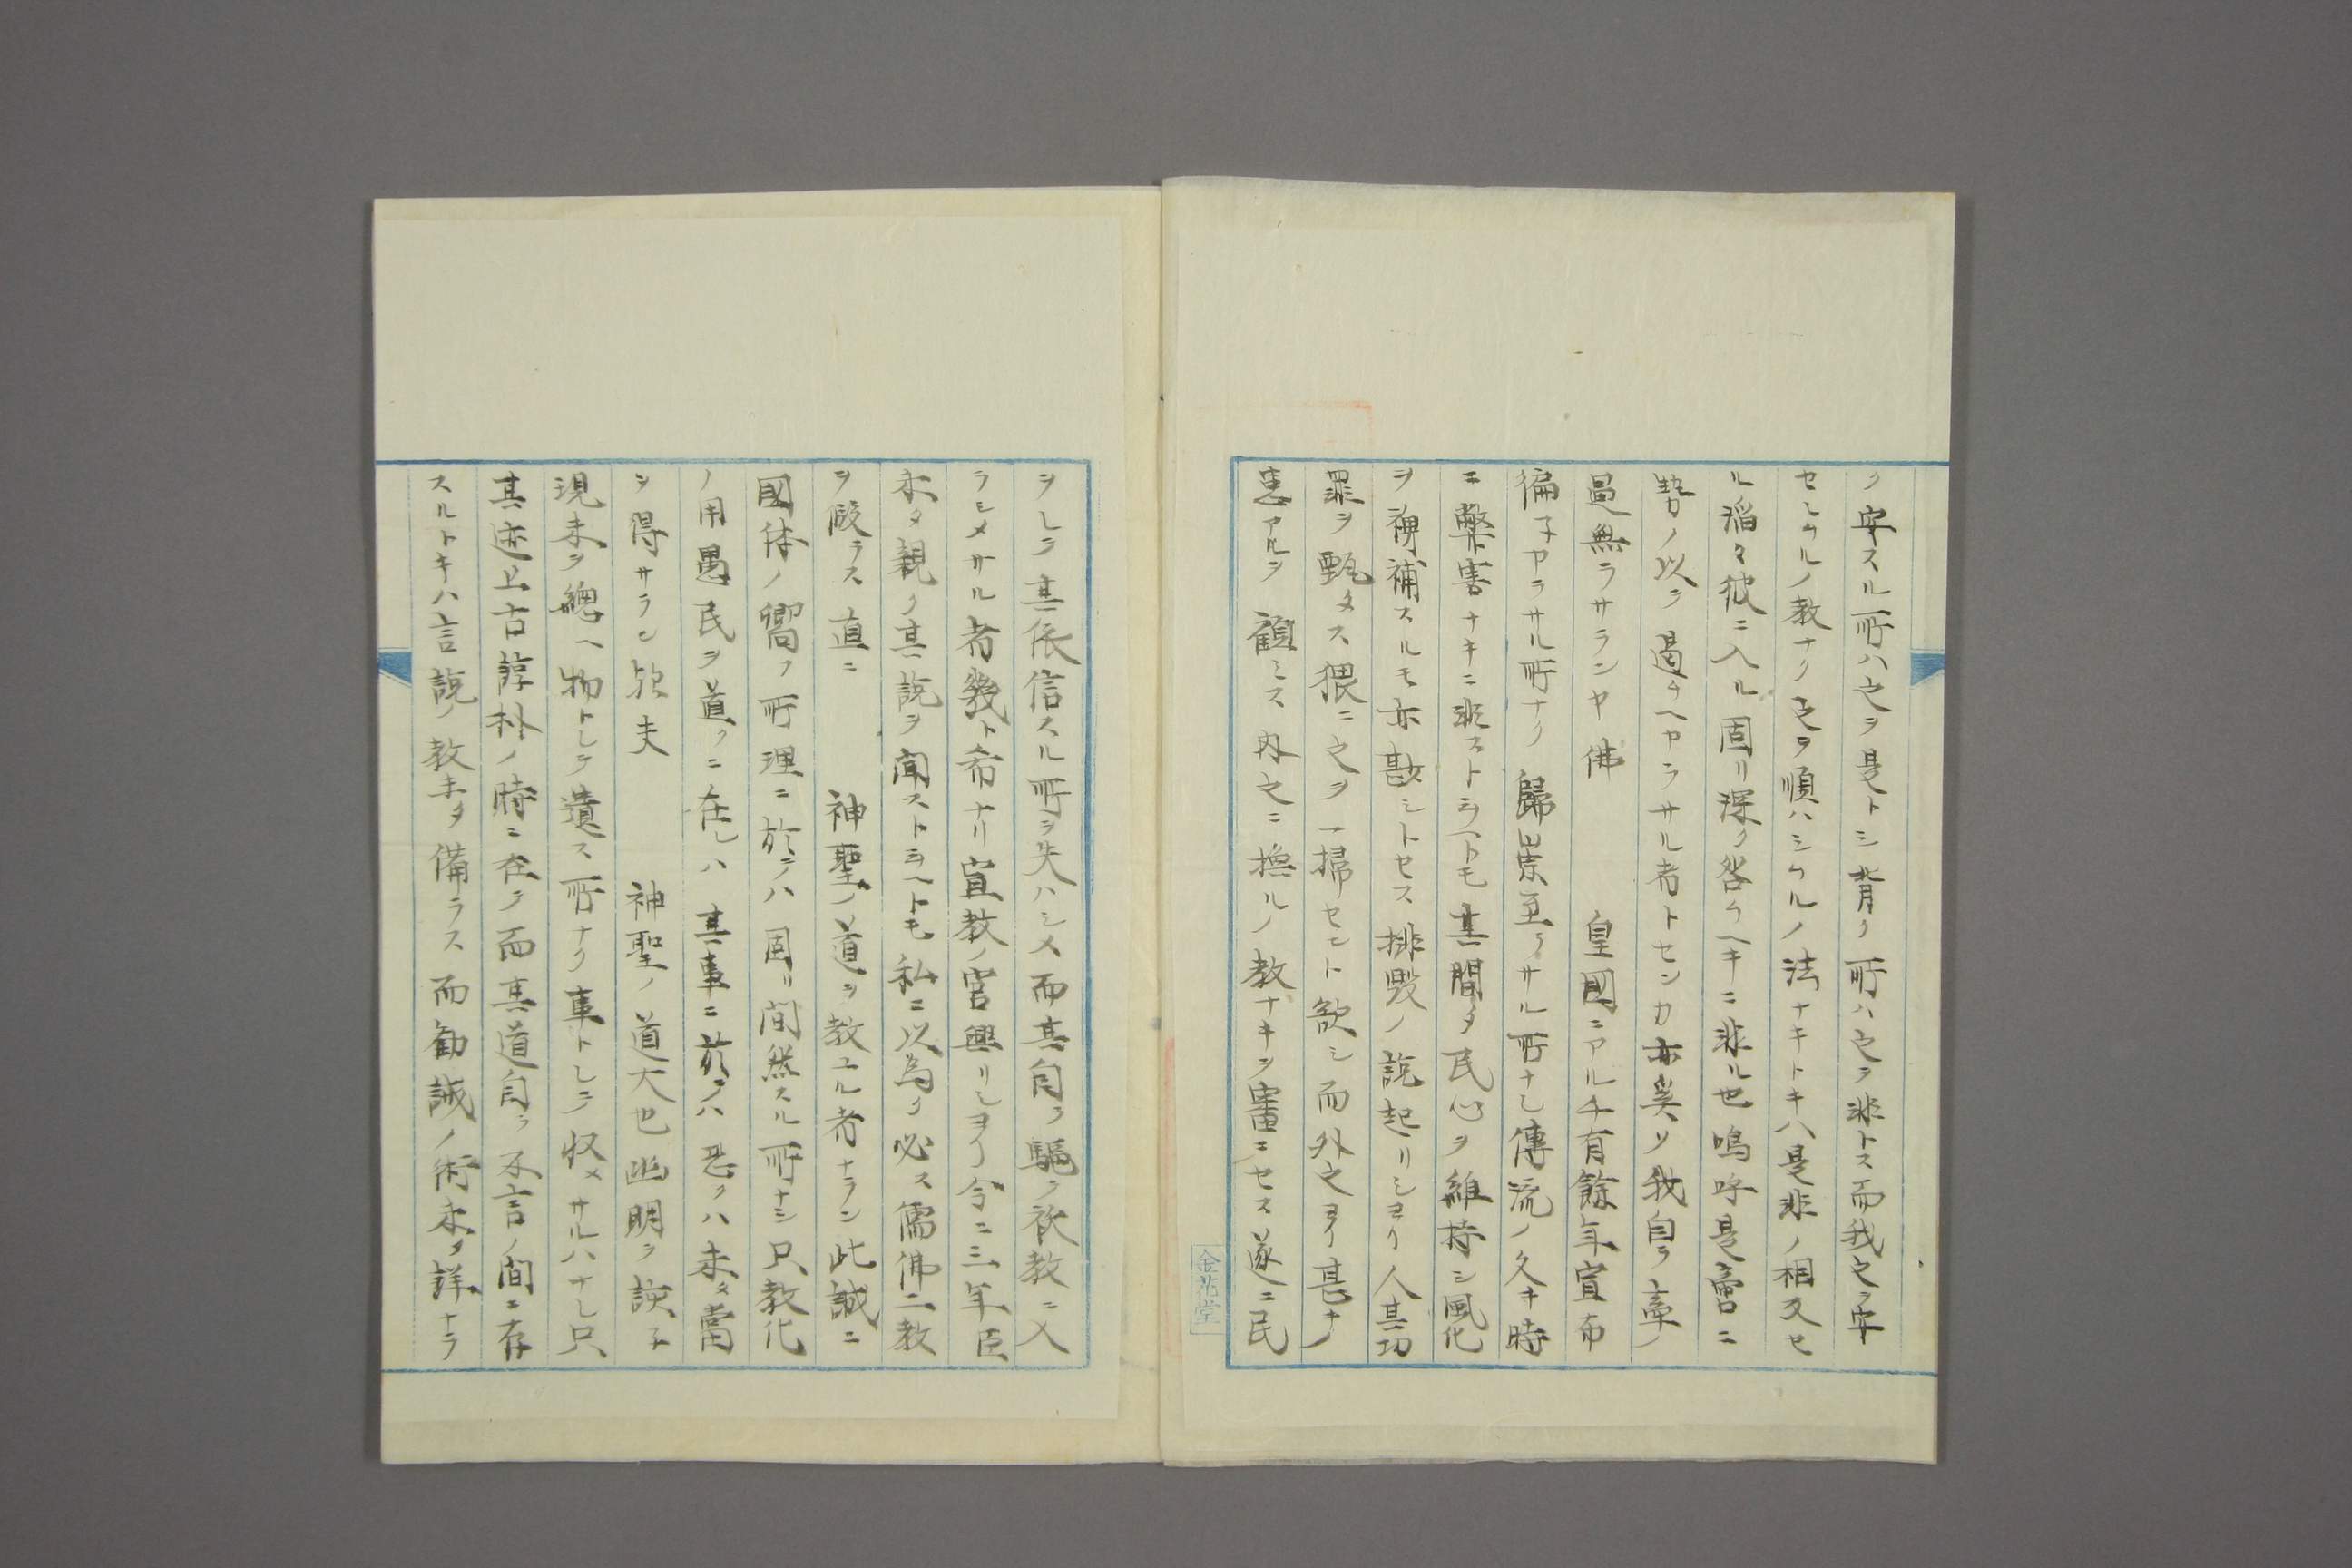 ク安スル所ハ之ヲ是トシ背ク所ハ之ヲ非トス而我之ヲ安
セシムルノ教ナク之ヲ順ハシムルノ法ナキトキハ是非ノ相反セ
ル滔々彼ニ入ル固リ深ク咎ムヘキニ非ル也嗚呼是豈ニ
勢ノ以テ遏ムヘカラサル者トセンカ亦奚ソ我自ラ牽ノ
過無ラサランヤ佛 皇國ニアル千有餘年宣布
徧子カラサル所ナク歸崇至ラサル所ナシ傳流ノ久キ時
ニ弊害ナキニ非ストヲヘトモ其間タ民心ヲ維持シ風化
ヲ裨補スルモ亦尠シトセス排毀ノ説起リシヨリ人其功
罪ヲ甄タス猥ニ之ヲ一掃セント欲シ而外之ヨリ甚キノ
患アルヲ顧ミス内之ニ換ルノ教ナキヲ審ニセス遂ニ民
金花堂
ヲシテ其依信スル所ヲ失ハシメ而其自ラ驅ラ祆教ニ入
ラシメサル者幾ト希ナリ宣教ノ官興リシヨリ今ニ三年臣
未タ親ク其説ヲ聞ストヲヘトモ私ニ以為ク必ス儒佛二教
ヲ假ラス直ニ 神聖ノ道ヲ教ユル者ナラン此誠ニ
國体ノ嚮フ所理ニ於テハ固リ間然スル所ナシ只教化
ノ用愚民ヲ道クニ在レハ其事ニ於テハ恐クハ未タ當
ヲ得サラン欤夫 神聖ノ道大也幽明ヲ該子
現未ヲ總ヘ物トシテ遺ス所ナク事トシテ收メサルハナシ只
其迹上古諄朴ノ時ニ在テ而其道自ラ不言ノ間ニ存
スルトキハ言説ノ教未タ備ラス而勧誡ノ術未タ詳ナラ